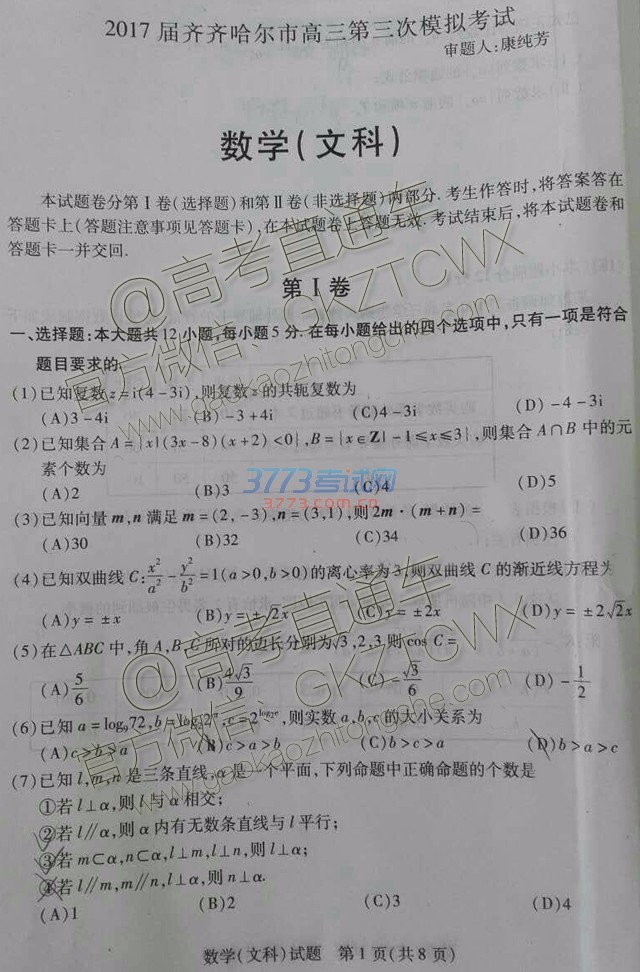 2017届齐齐哈尔市高三第三次模拟考试
审题人:康纯芳
数学(文科)
本试题卷分第Ⅰ卷(选择题)和第Ⅱ卷(非选择题)两部分.考生作答时,将答案答在
答题卡上(答题注意事项见答题卡),在本试题卷上答题无效.考试结束后,将本试题卷和
答题卡一并交回.
第Ⅰ卷
一、选择题:本大题共12小题,每小题5分.在每小题给出的四个选项中,只有一项是符合
题目要求的.
(1)已知复数z=i(4-3i),则复数z的共轭复数为
(A)3-4i (B)-3+4i (C)4-3i (D)-4-3i
(2)已知集合A={x|(3x-8)(x+2)<0},B={x∈Z|-1≤x≤3},则集合A∩B中的元
素个数为
(A)2 (B)3 (C)4 (D)5
(3)已知向量m,n满足m=(2,-3),n=(3,1),则2m·(m+n)=
(A)30 (B)32 (C)34 (D)36
(4)已知双曲线C:x²/a²-y²/b²=1(a>0,b>0)的离心率为3,则双曲线C的渐近线方程为
(A)y=±x (B)y=±√2x (C)y=±2x (D)y=±2√2x
(5)在△ABC中,角A,B,C所对的边长分别为√3,2,3,则cos C=
(A)5/6 (B)4√3/9 (C)-√3/6 (D)-1/2
(6)已知a=log₉72,则实数a,b,c的大小关系为
(A)c>b>a (B)c>a>b (C)b>c>a (D)b>a>c
(7)已知l,m,n是三条直线,α是一个平面,下列命题中正确命题的个数是
①若l⊥α,则l与α相交;
②若l∥α,则α内有无数条直线与l平行;
③若m⊂α,n⊂α,l⊥m,l⊥n,则l⊥α;
④若l∥m,m∥n,l⊥α,则n⊥α.
(A)1 (B)2 (C)3 (D)4
数学(文科)试题 第1页(共8页)
@高考直通车
官方微信:GKZTCWX
www.gaokaozhitongche.com
3773考试网
3773.com.cn
@高考直通车
官方微信:GKZTCWX
www.gaokaozhitongche.com